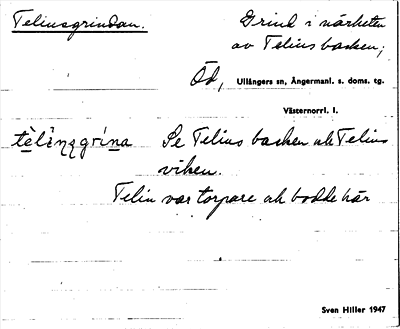 Teliusgrindan.
Grind i närheten
av Telius backen;
Öd, Ullångers sn, Ångermanl. s. doms. tg.
Västernorrl. l.
Se Telius backen och Telius
viken.
Telin var torpare och bodde här
Sven Hiller 1947